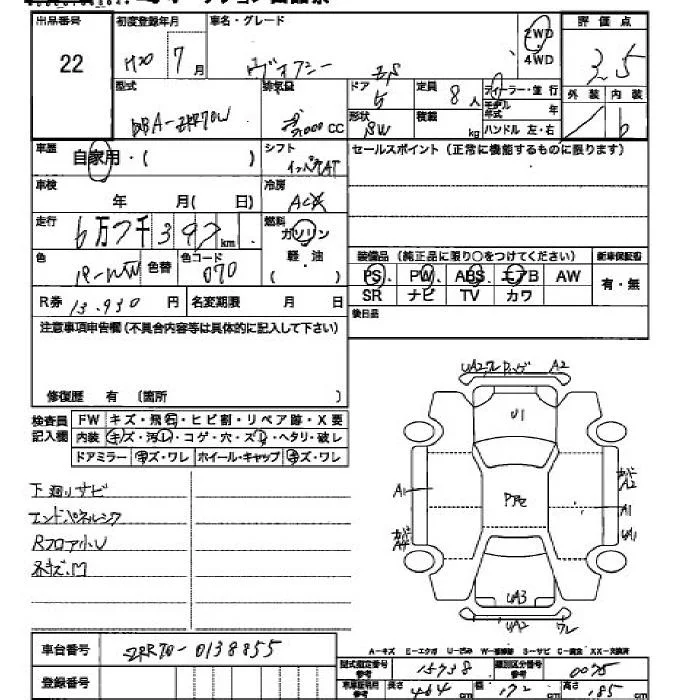 出品番号 初度登録年月 車名・グレード 評価点
22 H20 7月 ヴォクシー 2WD 3.5
4WD
外装 内装
型式 排気量 ドア 定員 ディーラー・並行
DBA-ZRR70W 2,000 CC 5 8人 モデル年式 年
形状 積載 kg ハンドル 左・右
車歴 自家用・( ) シフト インパネAT セールスポイント (正常に機能するものに限ります)
車検 年 月( 日) 冷房 AC
走行 6万7千397 km 燃料 ガソリン
軽・油
( )
色 パールW 色替 色コード 070
装備品 (純正品に限り○をつけてください) 新車保証書
PS PW ABS エアB AW 有・無
SR ナビ TV カワ
R券 13,930 円 名変期限 月 日
後日品
注意事項申告欄 (不具合内容等は具体的に記入して下さい)
修復歴 有 (箇所 )
検査員記入欄 FW キズ・飛石・ヒビ割・リペア跡・X要
内装 キズ・汚レ・コゲ・穴・スレ・ヘタリ・破レ
ドアミラー キズ・ワレ ホイール・キャップ キズ・ワレ
下廻リサビ
エンドパネルシワ
Rフロア小U
A2
U1
A1
A2
A1
UA1
UA3
UA2 ワレ
車台番号 ZRR70-0138855
A-キズ E-エクボ U-凹み W-補修跡 S-サビ C-腐食 XX-交換済
型式指定番号 15738 類別区分番号 0075
登録番号
長さ 464 cm 幅 172 cm 高さ 185 cm